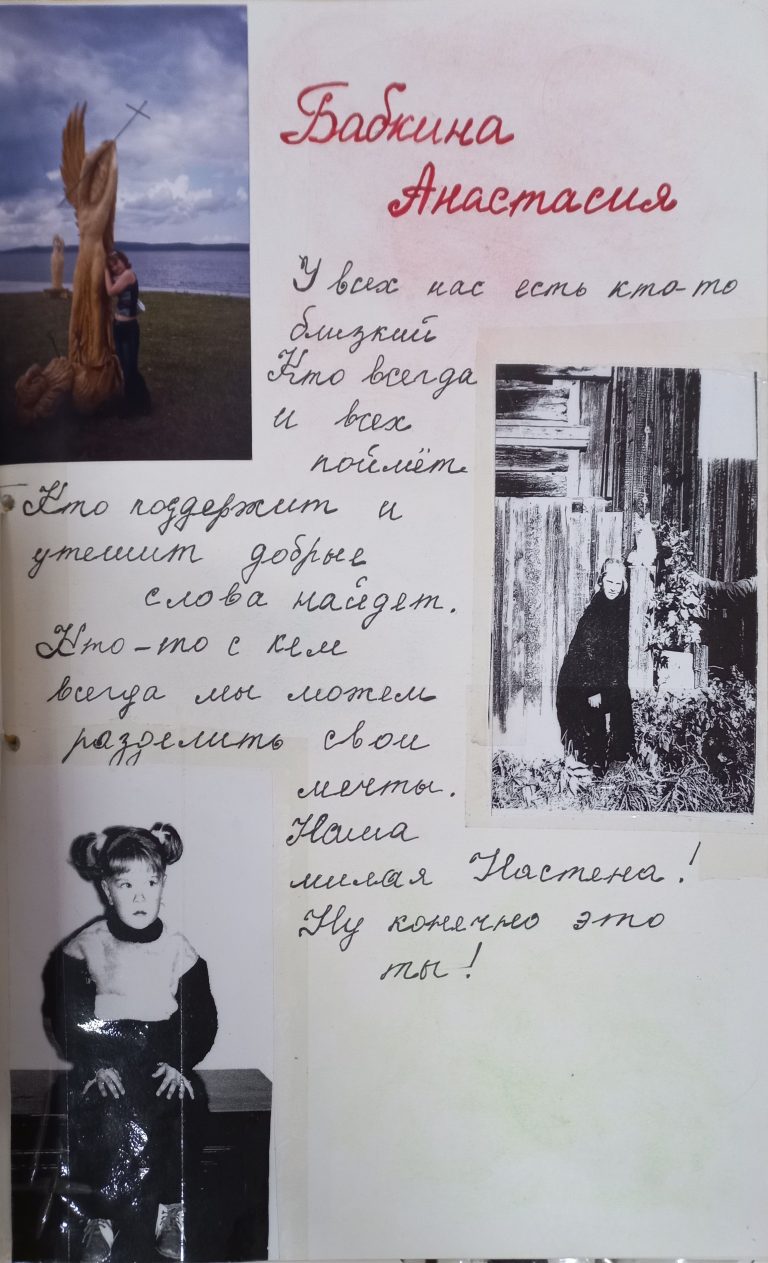 Бабкина
Анастасия
У всех нас есть кто-то
близкий
Кто всегда
и всех
поймёт.
Кто поддержит и
утешит добрые
слова найдет.
Кто-то с кем
всегда мы можем
разделить свои
мечты.
Наша
милая Настена!
Ну конечно это
ты!